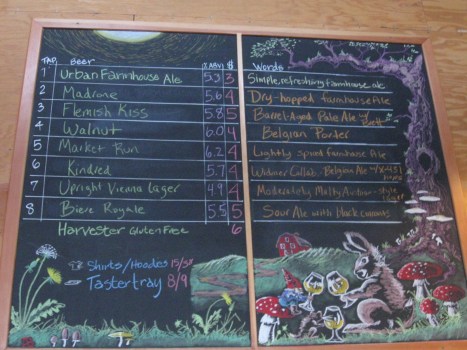 TAP Beer %ABV $ Words
1 Urban Farmhouse Ale 5.3 3 Simple, refreshing farmhouse ale
2 Madrone 5.6 4 Dry-hopped farmhouse Ale
3 Flemish Kiss 5.8 5 Barrel-Aged Pale Ale w/ Brett
4 Walnut 6.0 4 Belgian Porter
5 Market Run 6.2 4 Lightly spiced farmhouse Ale
6 Kindred 5.7 4 Widmer Collab. Belgian Ale
7 Upright Vienna Lager 4.9 4 Moderately Malty Austrian-style lager
8 Biere Royale 5.5 5 Sour Ale with black currants
Harvester Gluten Free 6
Shirts/Hoodies 15/
Taster tray 8/9